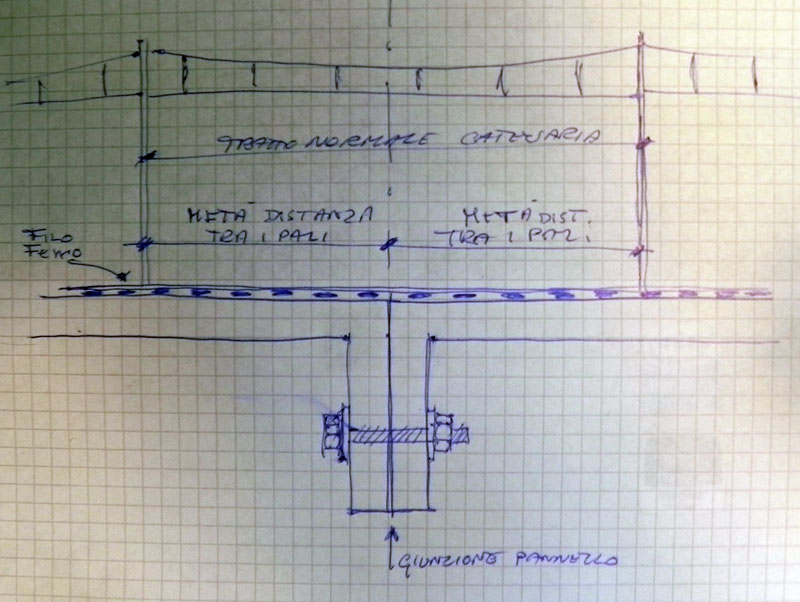 TRATTO NORMALE CATENARIA
METÀ DISTANZA
TRA I PALI
METÀ DIST.
TRA I PALI
FILO
FERRO
GIUNZIONE PANNELLO